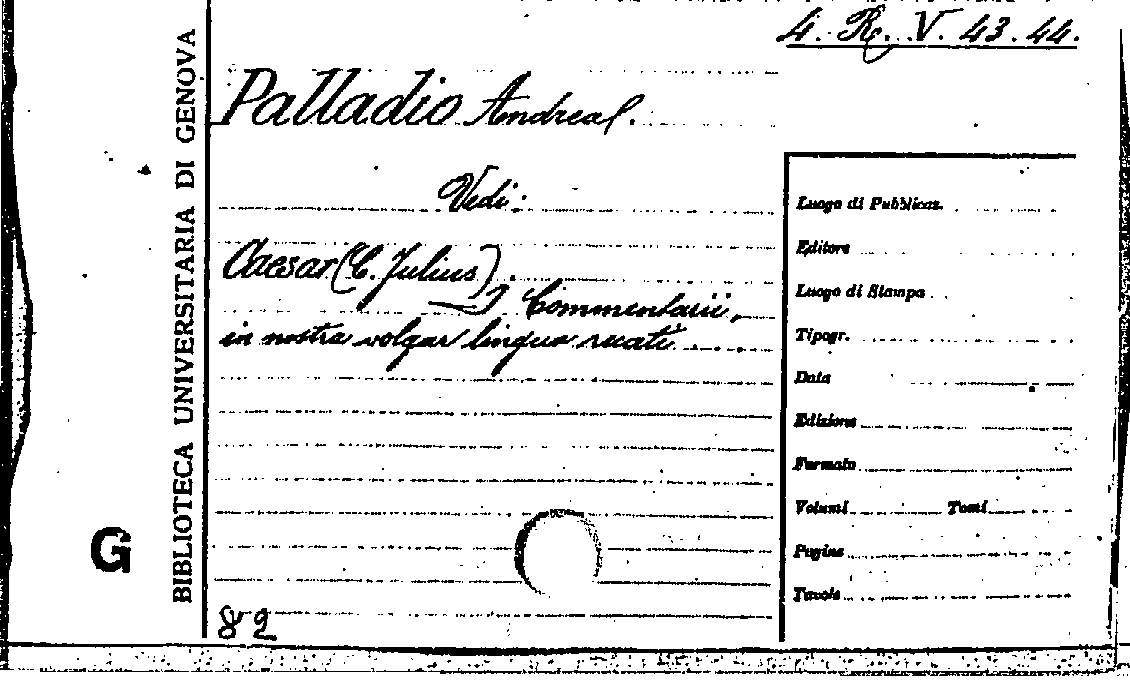 4. R. V. 43. 44.
Palladio Andrea.
Vedi:
Caesar (C. Julius).
I Commentarii,
in nostra volgar lingua recati
82
BIBLIOTECA UNIVERSITARIA DI GENOVA
G
Luogo di Pubblicaz.
Editore
Luogo di Stampa
Tipogr.
Data
Edizione
Formato
Volumi Tomi
Pagine
Tavole